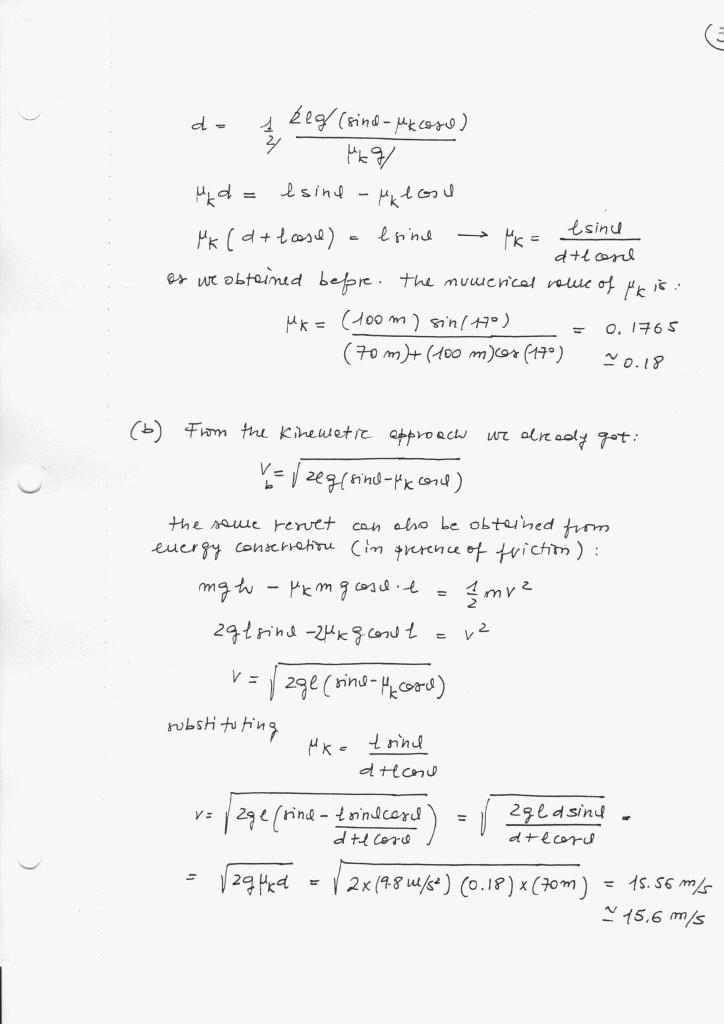 3
d = 1/2 2lg(sinθ - μ_k cosθ) / μ_k g
μ_k d = l sinθ - μ_k l cosθ
μ_k (d + l cosθ) = l sinθ → μ_k = l sinθ / (d + l cosθ)
as we obtained before. the numerical value of μ_k is:
μ_k = (100 m) sin(17°) / ((70 m) + (100 m) cos(17°)) = 0.1765
≃ 0.18
(b) From the kinematic approach we already got:
v_b = √(2lg(sinθ - μ_k cosθ))
the same result can also be obtained from
energy conservation (in presence of friction):
mgh - μ_k m g cosθ · l = 1/2 mv²
2gl sinθ - 2μ_k g cosθ l = v²
v = √(2gl(sinθ - μ_k cosθ))
substituting
μ_k = l sinθ / (d + l cosθ)
v = √(2gl(sinθ - l sinθ cosθ / (d + l cosθ))) = √(2gld sinθ / (d + l cosθ)) =
= √(2gμ_k d) = √(2x(9.8 m/s²)(0.18)x(70m)) = 15.56 m/s
≃ 15,6 m/s